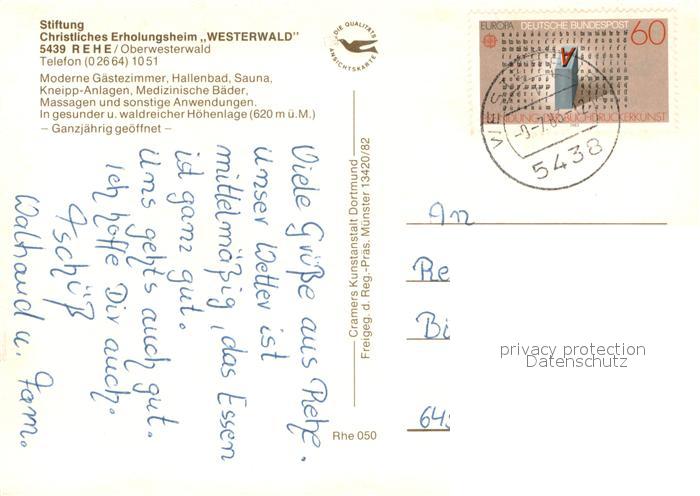 Stiftung
Christliches Erholungsheim „WESTERWALD"
5439 REHE/Oberwesterwald
Telefon (0 26 64) 10 51
Moderne Gästezimmer, Hallenbad, Sauna,
Kneipp-Anlagen, Medizinische Bäder,
Massagen und sonstige Anwendungen.
In gesunder u. waldreicher Höhenlage (620 m ü.M.)
– Ganzjährig geöffnet –
DIE QUALITÄTS
ANSICHTSKARTE
EUROPA DEUTSCHE BUNDESPOST 60
A
BUCHDRUCKERKUNST
WEST
5438
Viele Grüße aus Rehe.
unser Wetter ist
mittelmäßig, das Essen
ist ganz gut.
Uns gehts auch gut.
Ich hoffe Dir auch.
Tschüß
Waltraud u. Fam.
Cramers Kunstanstalt Dortmund
Freigeg. d. Reg.-Präs. Münster 13420/82
Rhe 050
An
Re
Bi
64
privacy protection
Datenschutz